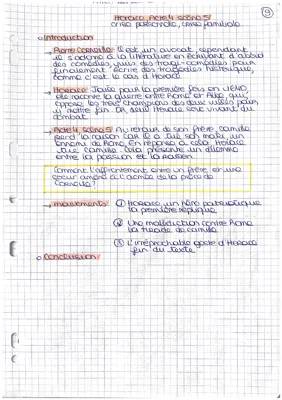 9
Horace, Acte 4 scène 5
crise personnelle, crise familiale
Introduction
→ Pierre Corneille: Il est un avocat, cependant
il s'adonne à la littérature en écrivant d'abord
des comédies, puis des tragi-comédies pour
finalement écrire des tragédies historique,
comme c'est le cas d'Horace
→ Horace: Jouée pour la première fois en 1640,
elle raconte la guerre entre Rome et Albe, qui
oppose les trois champions des deux villes pour
y mettre fin. Or, seul Horace sort vivant du
combat.
→ Acte 4, scène 5: Au retour de son frère, Camille
perd la raison car il a tué son mari, un
ennemi de Rome. En réponse à cela Horace
tue Camille. Cela présente un dilemme
entre la passion et la raison.
Comment l'affrontement entre un frère et une
soeur amène à l'acmée de la pièce de
Corneille?
→ mouvements: ① Horace, un héro patriotique
la première réplique
② Une malédiction contre Rome
la tirade de Camille
③ L'irréprochable geste d'Horace
fin du texte
Conclusion